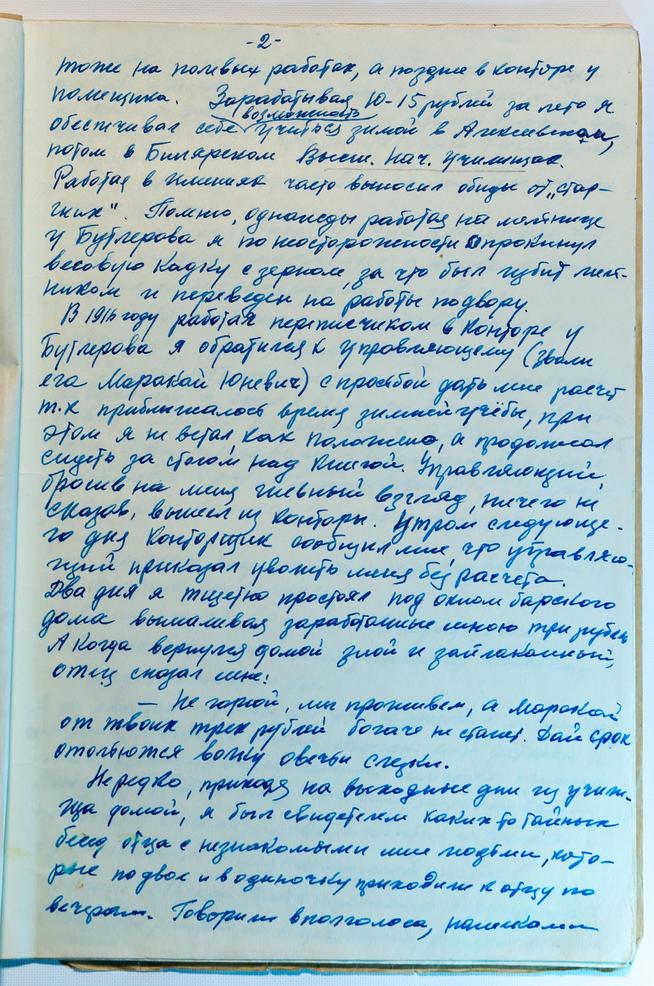 -2-
тоже на полевых работах, а позднее в конторе у
помещика. Зарабатывая 10-15 рублей за лето я
возможность
обеспечивал себе учиться зимой в Алексеевском,
потом в Билярском Высш. нач. училищах.
Работая в имениях часто выносил обиды от „стар-
ших". Помню, однажды работая на мельнице
у Бутлерова я по неосторожности опрокинул
весовую кадку с зерном, за что был избит мель-
ником и переведен на работы по двору.
В 1916 году работая переписчиком в конторе у
Бутлерова я обратился к управляющему (звали
его Маракай Юневич) с просьбой дать мне расчет
т.к приближалось время зимней учёбы, при
этом я не встал как положено, а продолжал
сидеть за столом над книгой. Управляющий,
бросив на меня гневный взгляд, ничего не
сказав, вышел из конторы. Утром следующе-
го дня конторщик сообщил мне, что управляю-
щий приказал уволить меня без расчета.
Два дня я тщетно простоял под окном барского
дома вымаливая заработанные мною три рубля.
А когда вернулся домой злой и заплаканный,
отец сказал мне:
— Не горюй, мы проживем, а Маракай
от твоих трех рублей богаче не станет. Дай срок
отольются волку овечьи слезки.
Нередко, приходя на выходные дни из учили-
ща домой, я был свидетелем каких то тайных
бесед отца с незнакомыми мне людьми, кото-
рые по двое и в одиночку приходили к отцу по
вечерам. Говорили вполголоса, намеками